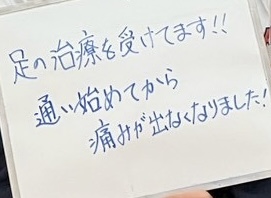 足の治療を受けてます!!
通い始めてから
痛みが出なくなりました!